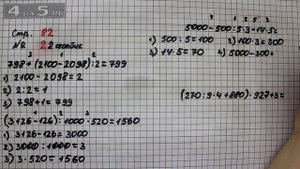 4 на 5.ru
Стр. 82
№ 22 столбик
3 1 2
798+(2100-2098):2=799
1) 2100-2098=2
2) 2:2=1
3) 798+1=799
1 2 3
(3126-126):1000·520=1560
1) 3126-126=3000
2) 3000:1000=3
3) 3·520=1560
4 1 2 5 3
5000-500:5·3-14·5=
1) 500:5=100 2) 100·3=300
3) 14·5=70 4) 5000-300=
(270:9·4+880)·927+3=